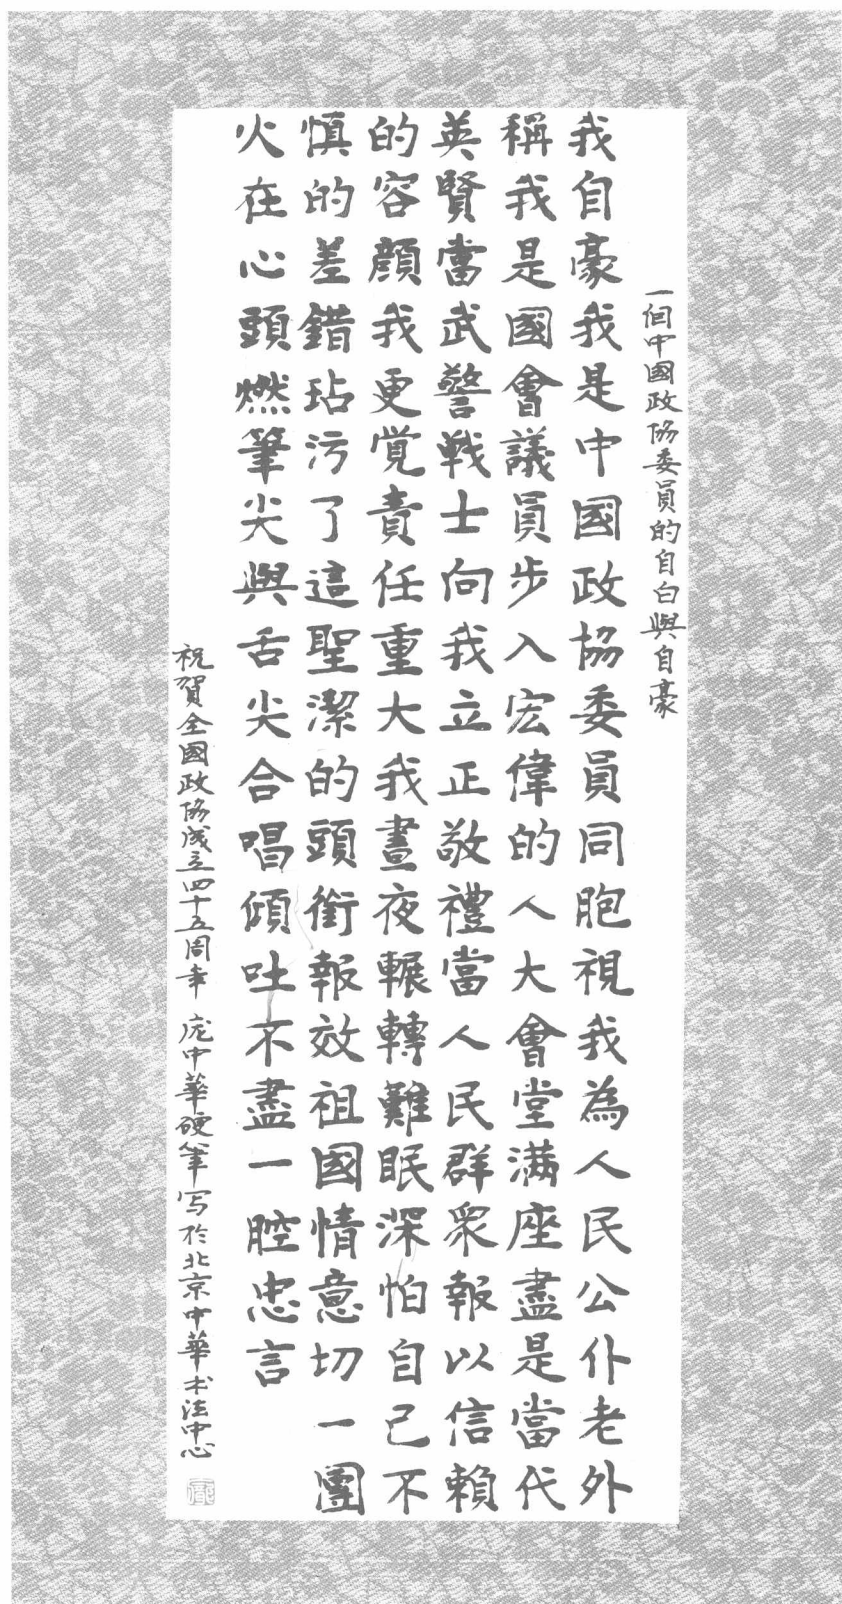 一個中國政協委員的自白與自豪
我自豪我是中國政協委員同胞視我為人民公仆老外
稱我是國會議員步入宏偉的人大會堂滿座盡是當代
英賢當武警戰士向我立正敬禮當人民群眾報以信賴
的容顏我更覚責任重大我晝夜輾轉難眠深怕自己不
慎的差錯玷污了這聖潔的頭銜報效祖國情意切一團
火在心頭燃筆尖與舌尖合唱傾吐不盡一腔忠言
祝賀全國政協成立四十五周年 庞中華硬筆写於北京中華书法中心